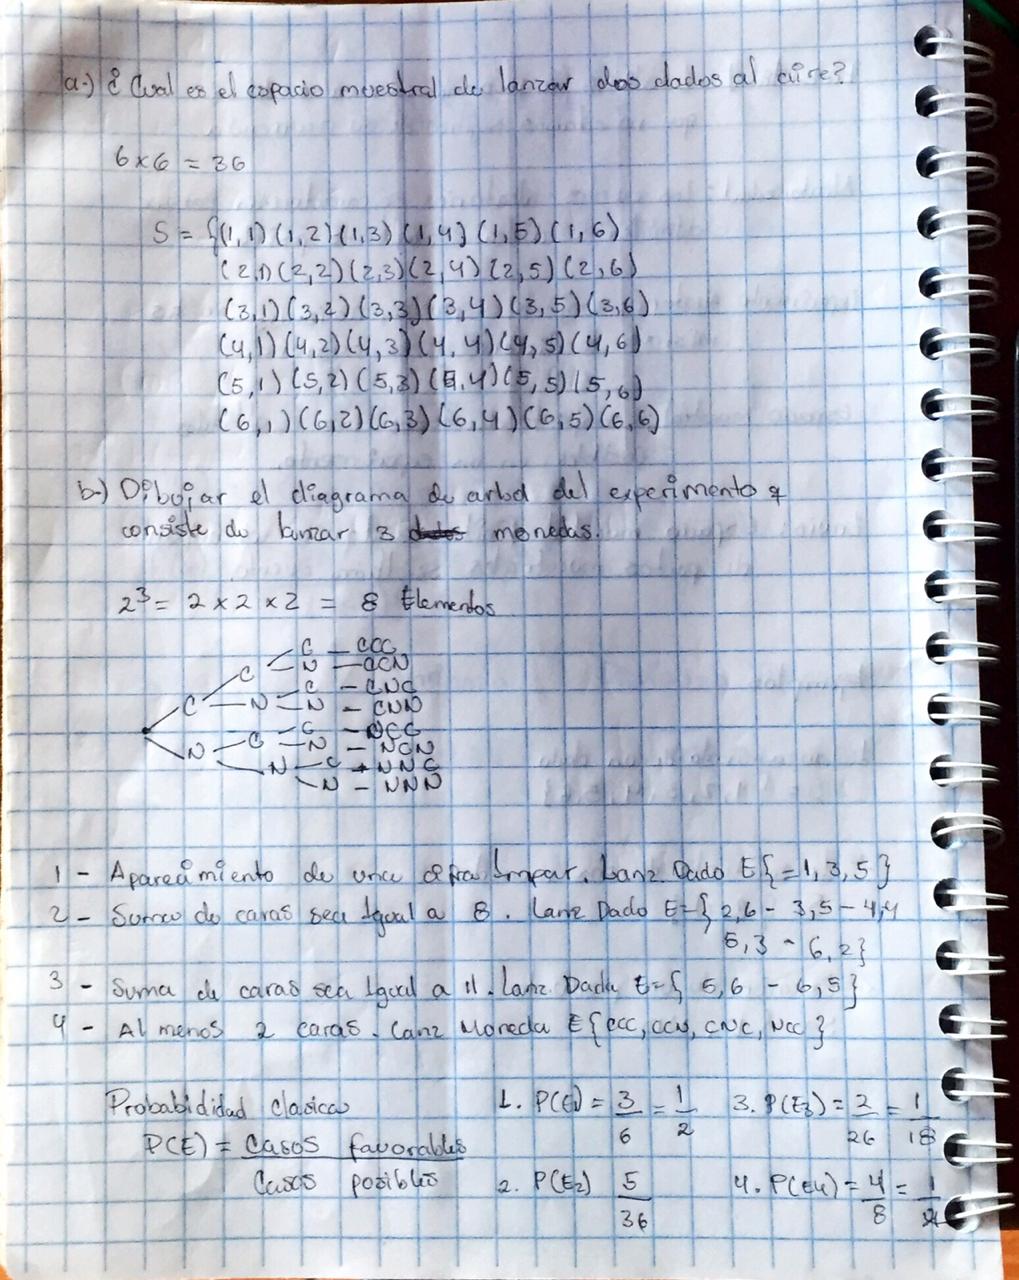 a.) ¿ Cual es el espacio muestral de lanzar dos dados al aire?
6 x 6 = 36
S = {(1,1) (1,2) (1,3) (1,4) (1,5) (1,6)
(2,1) (2,2) (2,3) (2,4) (2,5) (2,6)
(3,1) (3,2) (3,3) (3,4) (3,5) (3,6)
(4,1) (4,2) (4,3) (4,4) (4,5) (4,6)
(5,1) (5,2) (5,3) (5,4) (5,5) (5,6)
(6,1) (6,2) (6,3) (6,4) (6,5) (6,6)
b.) Dibujar el diagrama de arbol del experimento q
consiste de lanzar 3 monedas.
2³ = 2 x 2 x 2 = 8 Elementos
C — CCC
C N — CCN
C — CNC
C — N — N — CNN
C — NCC
N — C — N — NCN
N — C — NNC
N — NNN
1 - Aparecimiento de una cifra Impar. Lanz Dado E{=1,3,5}
2 - Suma de caras sea Igual a 8. Lanz Dado E={ 2,6 - 3,5 - 4,4
5,3 - 6,2}
3 - Suma de caras sea Igual a 11. Lanz Dado E={ 5,6 - 6,5}
4 - Al menos 2 caras. Lanz Moneda E{CCC, CCN, CNC, NCC}
Probabididad clasica 1. P(E1) = 3/6 = 1/2 3. P(E3) = 2/26 = 1/18
P(E) = Casos favorables / Casos posibles 2. P(E2) 5/36 4. P(E4) = 4/8 = 1/